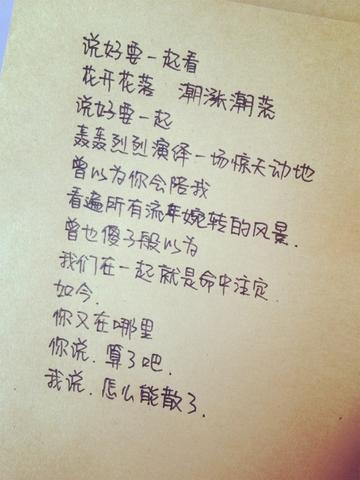 说好要一起看
花开花落 潮涨潮落
说好要一起
轰轰烈烈演绎一场惊天动地
曾以为你会陪我
看遍所有流年婉转的风景.
曾也傻子般以为
我们在一起就是命中注定
如今.
你又在哪里
你说.算了吧.
我说.怎么能散了.